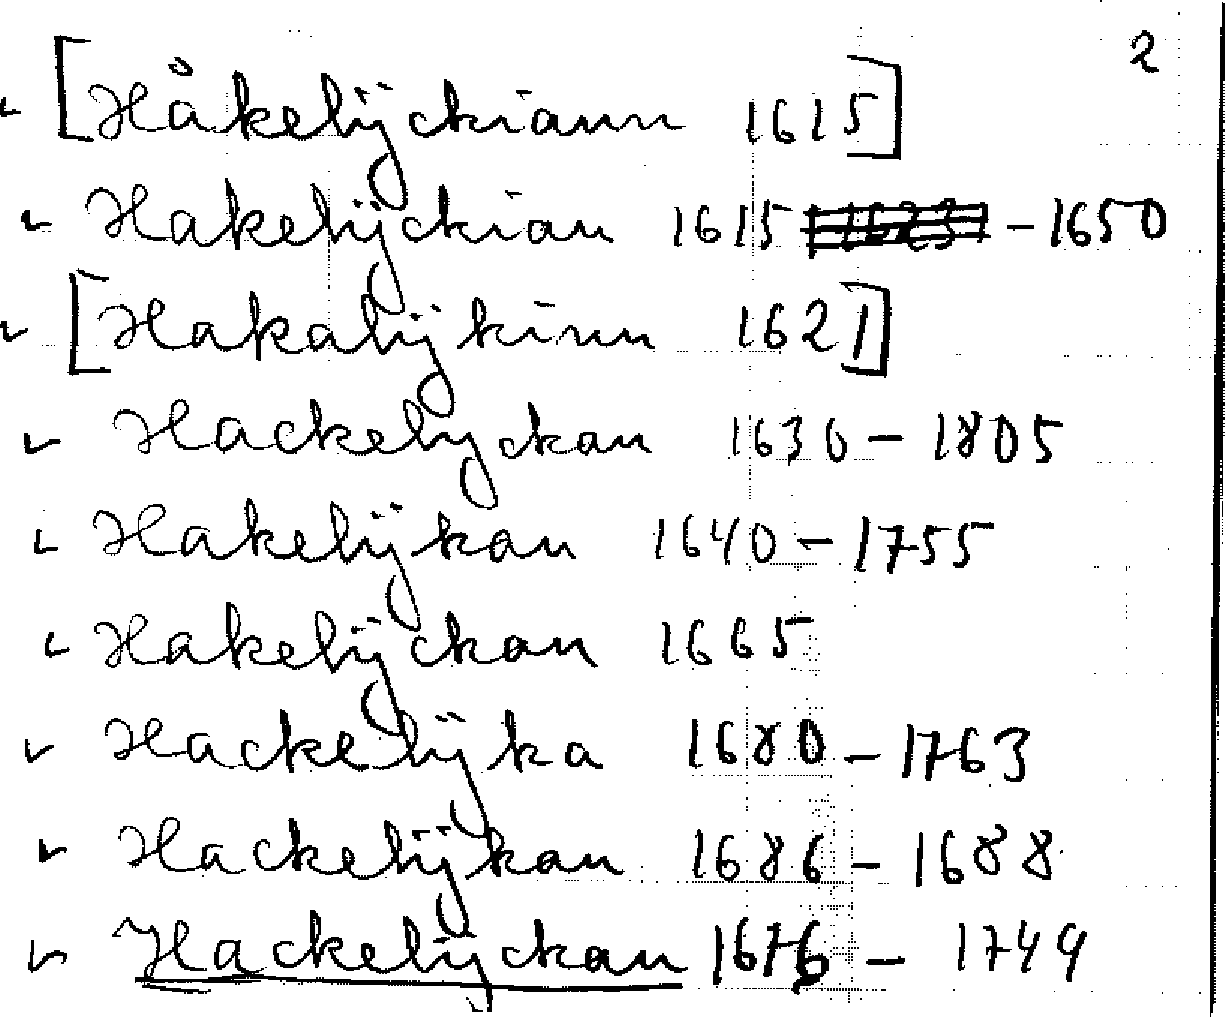 2
[Håkelÿckiann 1615]
Hakelÿckian 1615 - 1650
[Hakalÿkinn 1621]
Hackelyckan 1630 - 1805
Hakelÿkan 1640 - 1755
Hakelÿckan 1665
Hackelÿka 1680 - 1763
Hackelÿkan 1686 - 1688
Hackelÿckan 1676 - 1749